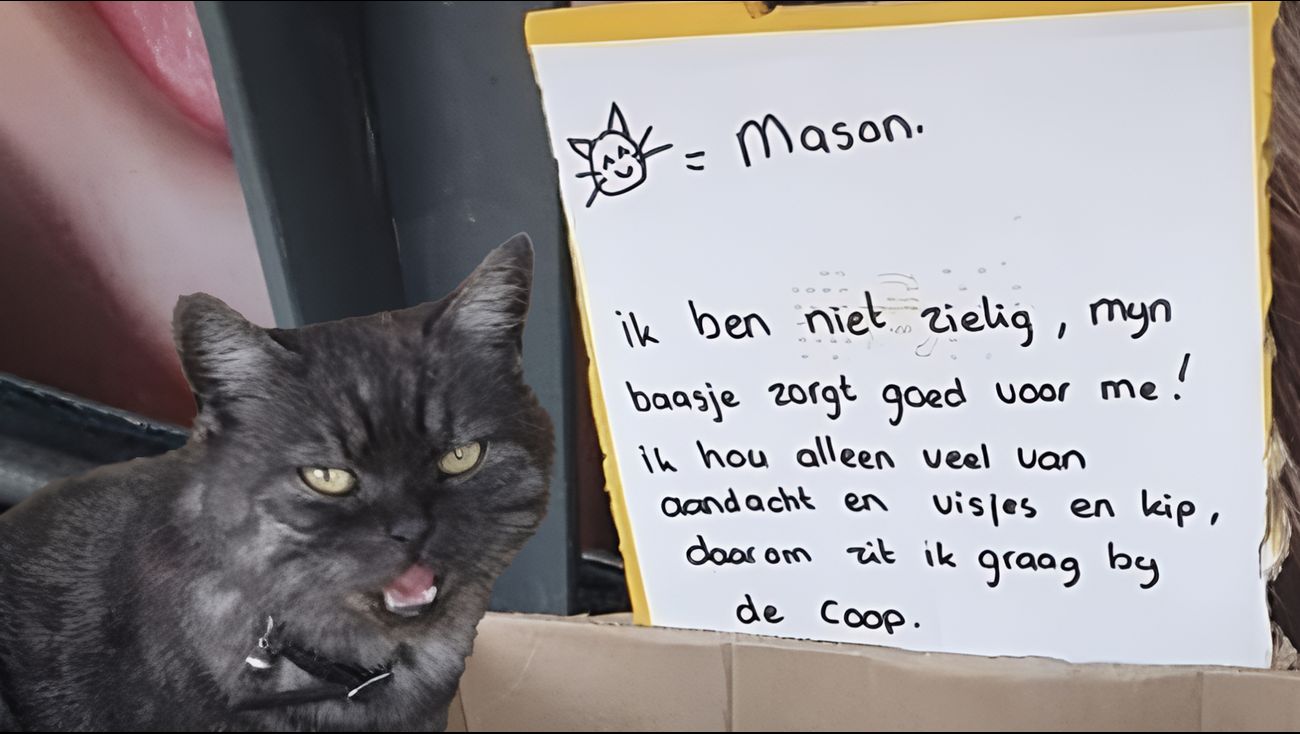 = Mason.
ik ben niet zielig, mijn
baasje zorgt goed voor me!
ik hou alleen veel van
aandacht en visjes en kip,
daarom zit ik graag bij
de Coop.